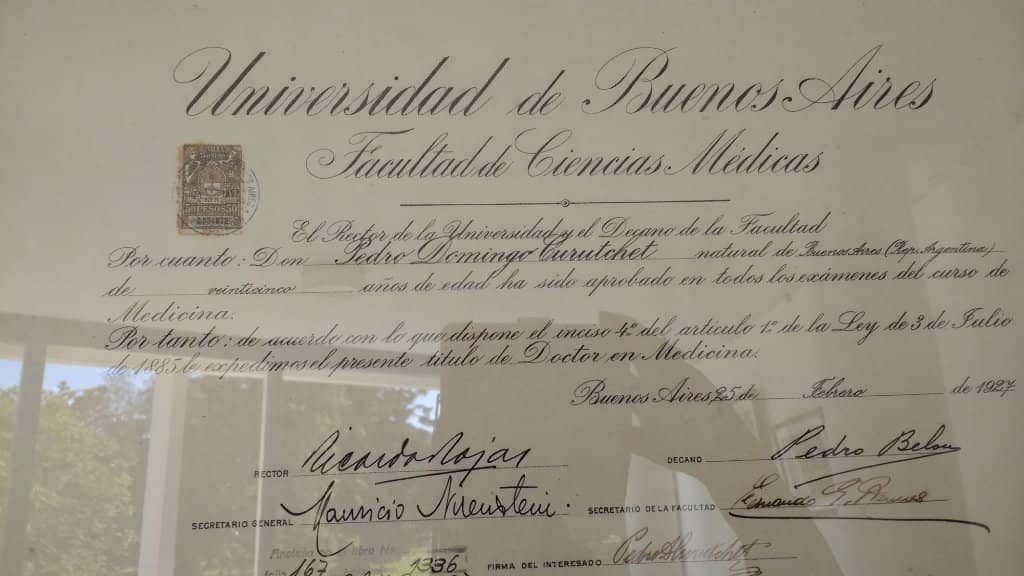 Universidad de Buenos Aires
Facultad de Ciencias Médicas
El Rector de la Universidad y el Decano de la Facultad
Por cuanto: Don Pedro Domingo Curutchet natural de Buenos Aires (Rep. Argentina)
de veinticinco años de edad ha sido aprobado en todos los exámenes del curso de
Medicina.
Por tanto: de acuerdo con lo que dispone el inciso 4º del artículo 1º de la Ley de 3 de Julio
de 1885 le expedimos el presente título de Doctor en Medicina.
Buenos Aires, 25 de Febrero de 1927
RECTOR Ricardo Rojas DECANO Pedro Belou
SECRETARIO GENERAL Mauricio SECRETARIO DE LA FACULTAD
Anotado en el libro Nº
folio 167 1336 FIRMA DEL INTERESADO Pedro D Curutchet